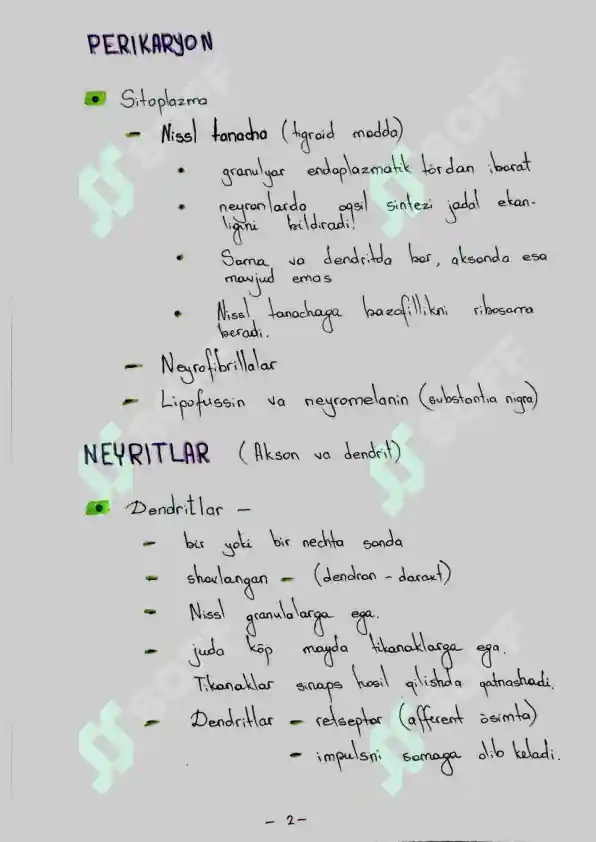 PERIKARYON
Sitoplazma
– Nissl tanacha (tigroid modda)
• granulyar endoplazmatik tördan iborat
• neyronlarda oqsil sintezi jadal ekan-
ligini bildiradi!
• Soma va dendritda bor, aksonda esa
mavjud emas
• Nissl tanachaga bazofillikni ribosoma
beradi.
– Neyrofibrillalar
– Lipofussin va neyromelanin (substantia nigra)
NEYRITLAR (Akson va dendrit)
Dendritlar –
– bir yoki bir nechta sonda
– shoxlangan – (dendron - daraxt)
– Nissl granulalarga ega.
– juda köp mayda tikanaklarga ega.
Tikanaklar sinaps hosil qilishda qatnashadi.
– Dendritlar – retseptor (afferent ösimta)
– impulsni somaga olib keladi.
- 2 -
SOFF
SOFF
SOFF
SOFF
SOFF
SOFF